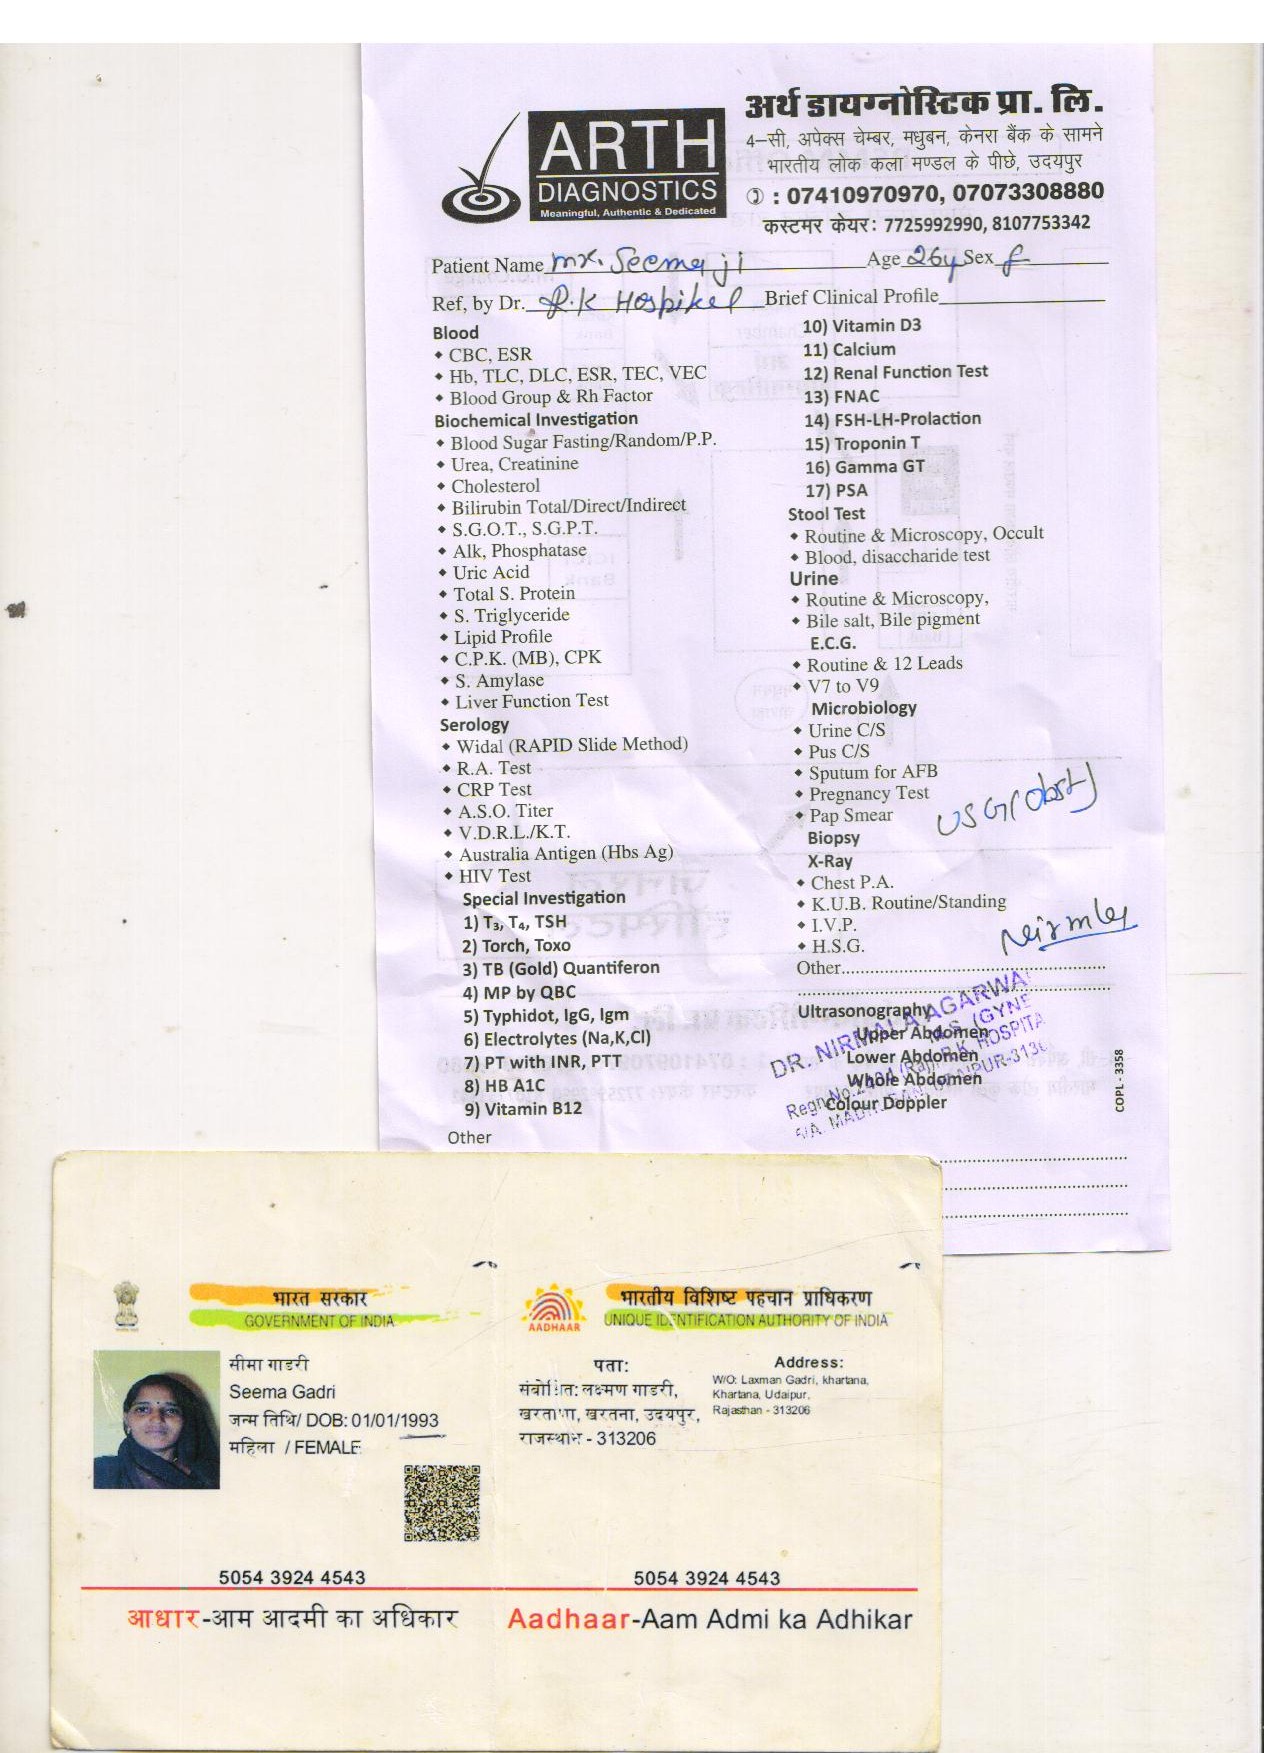 ARTH
DIAGNOSTICS
Meaningful, Authentic & Dedicated
अर्थ डायग्नोस्टिक प्रा. लि.
4–सी, अपेक्स चेम्बर, मधुबन, केनरा बैंक के सामने
भारतीय लोक कला मण्डल के पीछे, उदयपुर
: 07410970970, 07073308880
कस्टमर केयर: 7725992990, 8107753342
Patient Name mr. Seema ji Age 26y Sex f
Ref, by Dr. R.K Hospital Brief Clinical Profile
Blood
CBC, ESR
Hb, TLC, DLC, ESR, TEC, VEC
Blood Group & Rh Factor
Biochemical Investigation
Blood Sugar Fasting/Random/P.P.
Urea, Creatinine
Cholesterol
Bilirubin Total/Direct/Indirect
S.G.O.T., S.G.P.T.
Alk, Phosphatase
Uric Acid
Total S. Protein
S. Triglyceride
Lipid Profile
C.P.K. (MB), CPK
S. Amylase
Liver Function Test
Serology
Widal (RAPID Slide Method)
R.A. Test
CRP Test
A.S.O. Titer
V.D.R.L./K.T.
Australia Antigen (Hbs Ag)
HIV Test
Special Investigation
1) T₃, T₄, TSH
2) Torch, Toxo
3) TB (Gold) Quantiferon
4) MP by QBC
5) Typhidot, IgG, Igm
6) Electrolytes (Na,K,Cl)
7) PT with INR, PTT
8) HB A1C
9) Vitamin B12
Other
10) Vitamin D3
11) Calcium
12) Renal Function Test
13) FNAC
14) FSH-LH-Prolaction
15) Troponin T
16) Gamma GT
17) PSA
Stool Test
Routine & Microscopy, Occult
Blood, disaccharide test
Urine
Routine & Microscopy,
Bile salt, Bile pigment
E.C.G.
Routine & 12 Leads
V7 to V9
Microbiology
Urine C/S
Pus C/S
Sputum for AFB
Pregnancy Test
Pap Smear
USG (Obst)
Biopsy
X-Ray
Chest P.A.
K.U.B. Routine/Standing
I.V.P.
H.S.G.
Nirmla
Other
Ultrasonography
Upper Abdomen
Lower Abdomen
Whole Abdomen
Colour Doppler
DR. NIRMALA AGARWA
M.S. (GYNE
Regn No. (Raj) R.K. HOSPITA
COPL - 3358
भारत सरकार
GOVERNMENT OF INDIA
सीमा गाडरी
Seema Gadri
जन्म तिथि/ DOB: 01/01/1993
महिला / FEMALE
5054 3924 4543
आधार-आम आदमी का अधिकार
AADHAAR
भारतीय विशिष्ट पहचान प्राधिकरण
UNIQUE IDENTIFICATION AUTHORITY OF INDIA
पता:
संबोधित: लक्ष्मण गाडरी,
खरताणा, खरतना, उदयपुर,
राजस्थान - 313206
Address:
W/O: Laxman Gadri, khartana,
Khartana, Udaipur,
Rajasthan - 313206
5054 3924 4543
Aadhaar-Aam Admi ka Adhikar